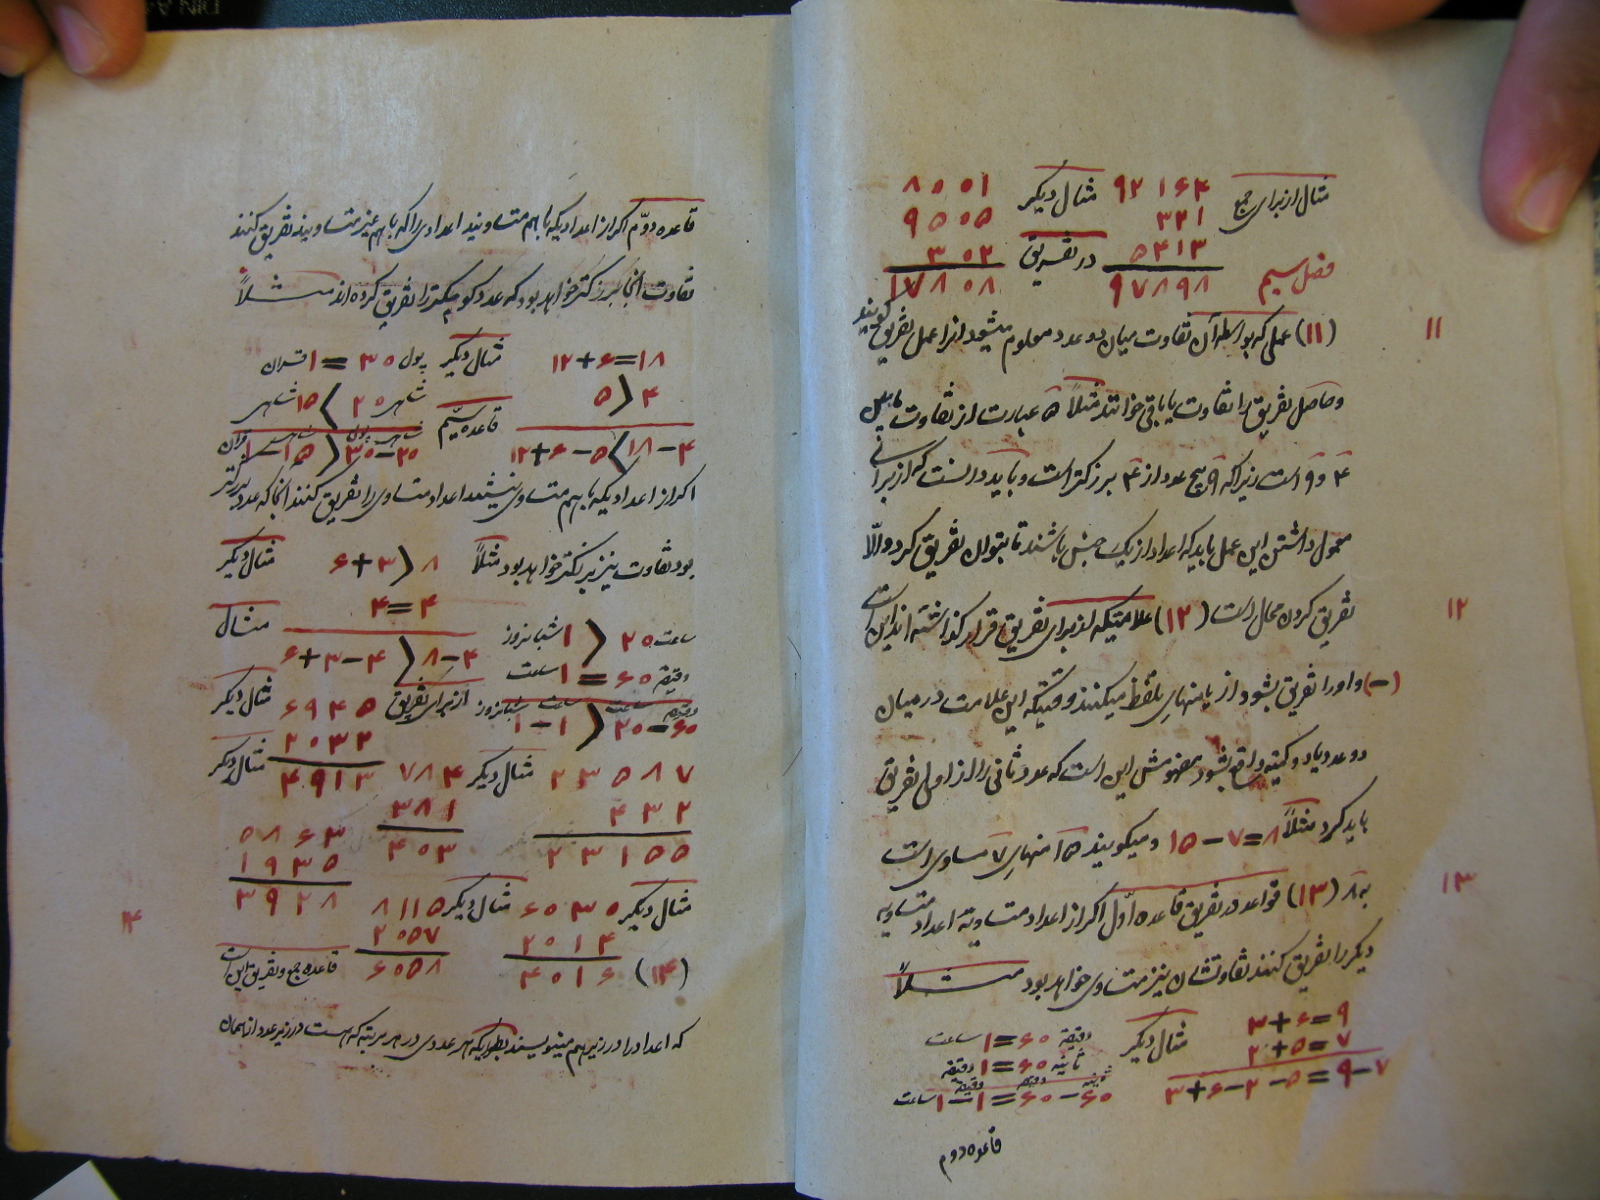 مثال از برای جمع ۹۲۱۶۴ مثال دیگر ۸۰۰۱
۳۲۱ ۹۵۰۵
فصل سیم ۵۴۱۳ در تفریق ۳۰۲
۹۷۸۹۸ ۱۷۸۰۸
۱۱
(۱۱) عملی که بواسطه آن تفاوت میان دو عدد معلوم میشود انرا عمل تفریق گویند
و حاصل تفریق را تفاوت یا باقی خوانند مثلاً ۵ عبارت از تفاوت مابین
۴ و ۹ است زیرا که ۹ پنج عدد از ۴ بزرکتر است و باید دانست که از برای
معمول داشتن این عمل باید که اعداد از یک جنس باشند تا بتوان تفریق کرد والّا
تفریق کردن محال است (۱۲) علامتیکه از برای تفریق قرار کذاشته اند این است
۱۲
(−) و او را تفریق بشود از یا منهای تلفظ میکنند وقتیکه این علامت در میان
دو عدد یا دو کمیّه واقع بشود مفهومش این است که عدد ثانی را از اول تفریق
باید کرد مثلاً ۸=۷−۱۵ و میکویند ۱۵ منهای ۷ مساوی است
به ۸ (۱۳) قواعد در تفریق قاعده اوّل اکر از اعداد متساویه اعداد متساویه
۱۳
دیکر را تفریق کنند تفاوتشان نیز متساوی خواهد بود مثلاً
۳+۶=۹ مثال دیکر دقیقه ۶۰=۱ ساعت
۲+۵=۷ ثانیه ۶۰=۱ دقیقه
۳+۶−۲−۵=۹−۷ ثانیه دقیقه دقیقه ۶۰−۶۰=۱−۱ ساعت
قاعده دوم
قاعده دوّم اکر از اعدادیکه با هم متساویند اعدادی را که با هم غیر متساویند تفریق کنند
تفاوت انجا بزرکتر خواهد بود که عدد کوچکتر را تفریق کرده اند مثلاً
۱۲+۶=۱۸ مثال دیکر پول ۳۰=۱ قران
۵>۴ شاهی ۲۰ > ۱۵ شاهی
۱۲+۶−۵<۱۸−۴ قاعده سیّم
اکر از اعدادیکه با هم متساوی نیستند اعداد متساوی را تفریق کنند انجا که عدد بزرکتر
بود تفاوت نیز بزرکتر خواهد بود مثلاً ۶+۳>۸ مثال دیکر
۴=۴ مثال
ساعت ۲۰ < ۱ شبانروز
۶+۳−۴>۸−۴
دقیقه ۶۰=۱ ساعت
دقیقه ساعت ساعت شبانروز ۲۰−۶۰ < ۱−۱
از برای تفریق ۶۹۴۵ مثال دیکر
۲۰۳۲
۴۹۱۳ مثال دیکر
۲۳۵۸۷ مثال دیکر ۷۸۴
۴۳۲ ۳۸۱ ۵۸۶۳
۲۳۱۵۵ ۴۰۳ ۱۹۳۵
۳۹۲۸
مثال دیکر ۶۰۳۰ مثال دیکر ۸۱۱۵
۲۰۱۴ ۲۰۵۷
۱۴
(۱۴) ۴۰۱۶ ۶۰۵۸ قاعده جمع و تفریق این است
که اعداد را در زیر هم مینویسند بطوریکه هر عددی در هر مرتبه که هست در زیر عدد از همان